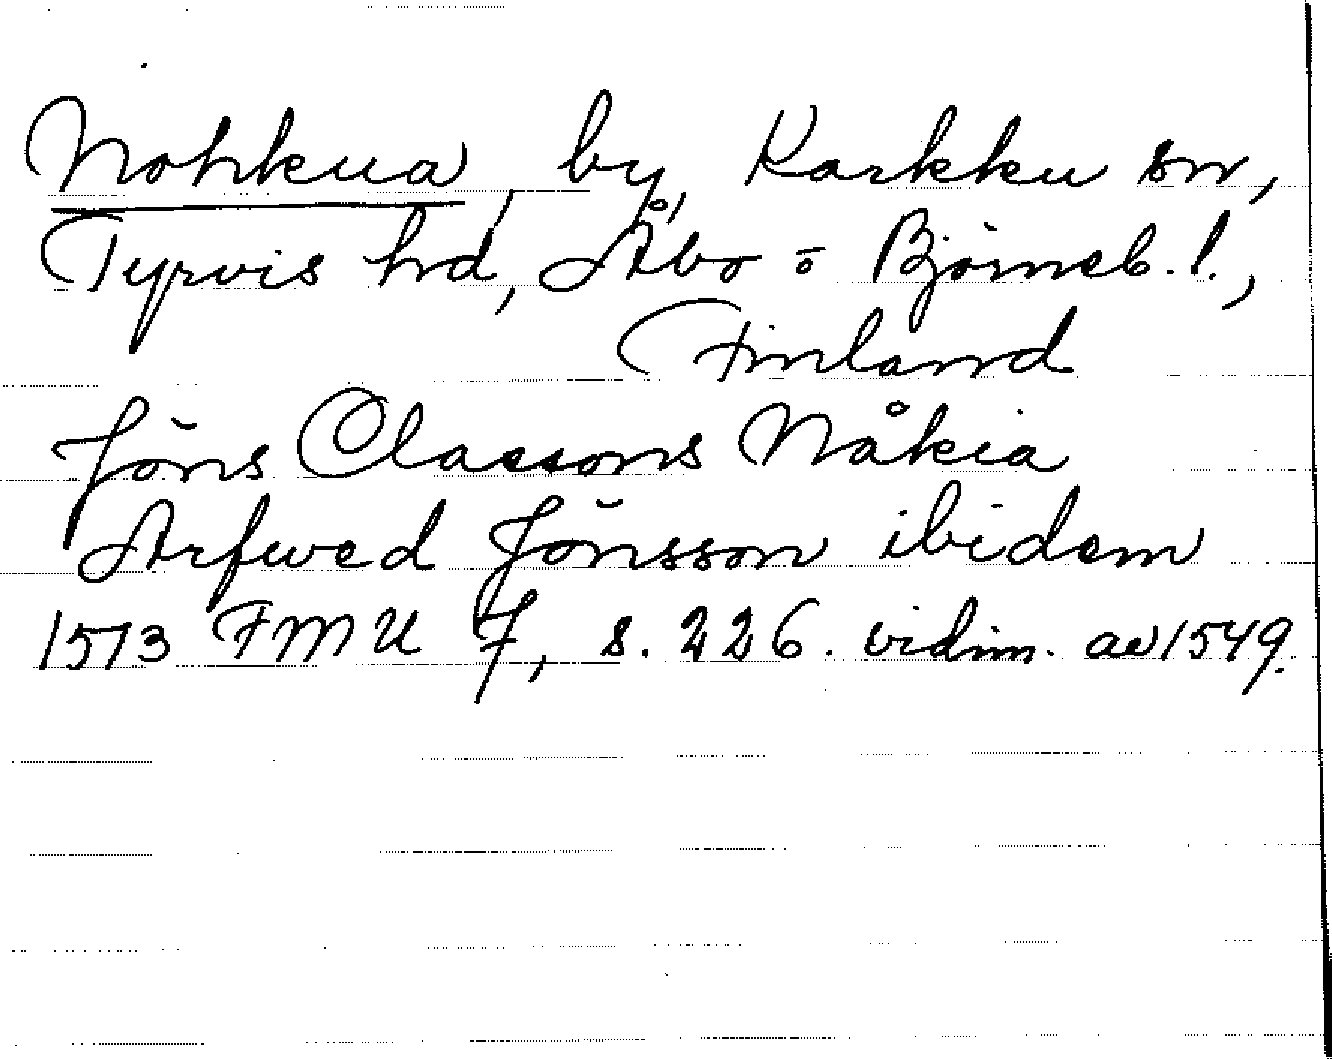 Nohkua, by, Karkku sn,
Tyrvis hd, Åbo o Björneb. l.,
Finland
Jöns Classons Nåkia
Arfwed Jönsson ibidem
1513 FMU 7, s. 226. vidim. av 1549.